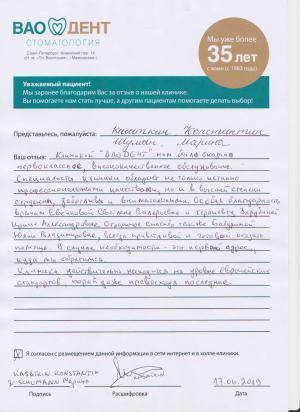 ВАО ДЕНТ
СТОМАТОЛОГИЯ
Мы уже более
35 лет
с вами (с 1983 года)
Уважаемый пациент!
Мы заранее благодарим Вас за отзыв о нашей клинике.
Вы помогаете нам стать лучше, а другим пациентам помогаете делать выбор!
Представьтесь, пожалуйста: Касаткин Константин
Шуман Марина
Ваш отзыв: Клиникой "ВАОДЕНТ" нам было оказано
первоклассное, высококачественное обслуживание.
Специалисты клиники обладают не только истинно
профессиональными качествами, но и в высшей степени
сердечны, заботливы и внимательны. Особая благодарность
врачам Светлане Валерьевне и
Ирине Александровне. Огромное спасибо также
Юлии Владимировне, всегда приветливой и готовой оказать
помощь. В случае необходимости - это первый адрес,
куда мы обратимся.
Клиника действительно находится на уровне Европейских
стандартов, порой даже превосходя последние.
Я согласен с размещением данной информации в сети интернет и в холле клиники.
KASATKIN KONSTANTIN
& SCHUMANN Марина
KASATKIN
17.06.2019
Подпись
Расшифровка
Дата